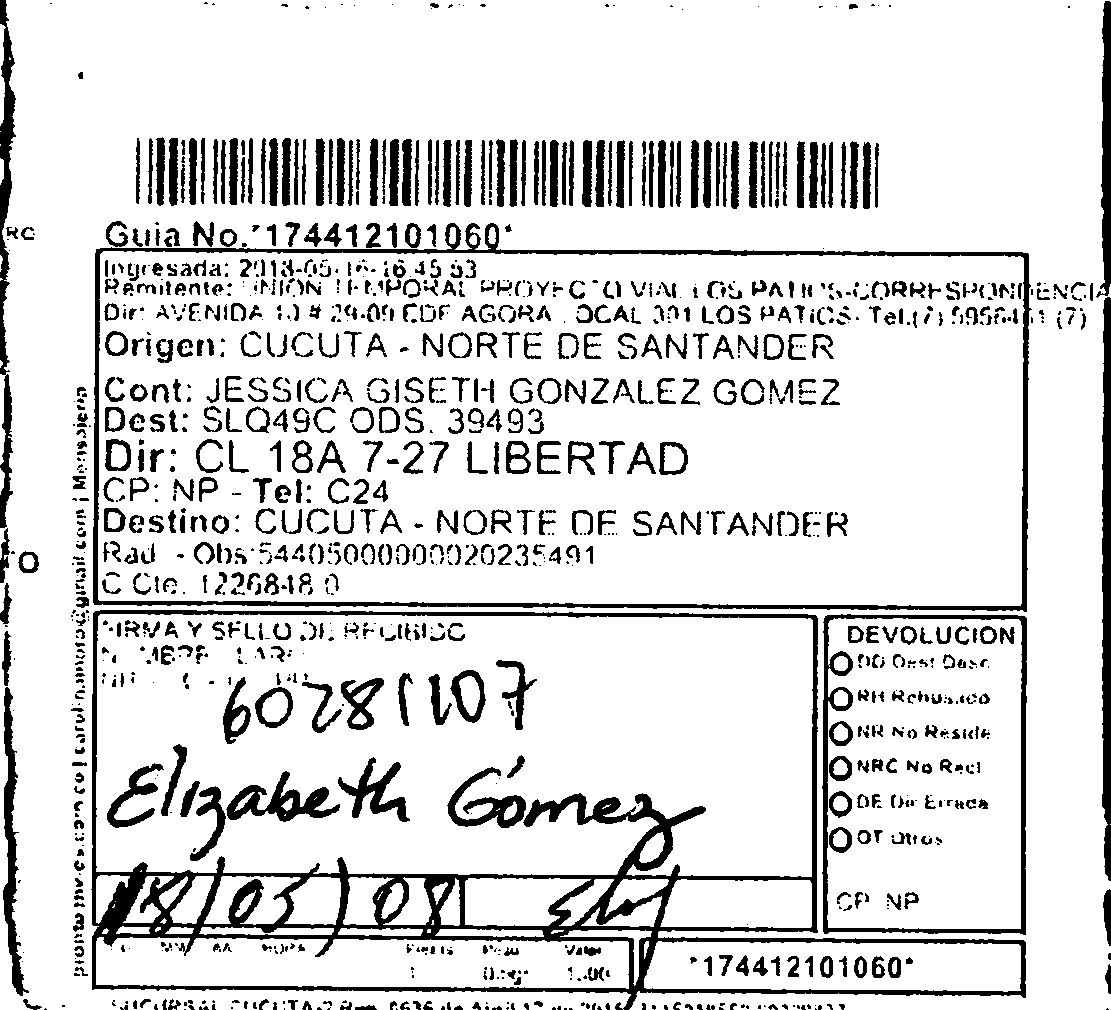 RC
Guia No.*174412101060*
Ingresada: 2018-05-16-16:45:53
Remitente: UNION TEMPORAL PROYECTO VIAL LOS PATIOS-CORRESPONDENCIA
Dir: AVENIDA 10 # 29-09 EDF AGORA LOCAL 301 LOS PATIOS- Tel.(7) (7)
Origen: CUCUTA - NORTE DE SANTANDER
Cont: JESSICA GISETH GONZALEZ GOMEZ
Dest: SLQ49C ODS. 39493
Dir: CL 18A 7-27 LIBERTAD
CP: NP - Tel: C24
Destino: CUCUTA - NORTE DE SANTANDER
Rad - Obs:544050000000020235491
C Cte. 1226848 0
O
FIRMA Y SELLO DE RECIBIDO
60281107
Elizabeth Gómez
18/05/08
DEVOLUCION
DD Dest Desc
RH Rehusado
NR No Reside
NRC No Recl
DE Dir Errada
OT Otros
CP NP
MM AA HORA
Peso Valor
1
*174412101060*